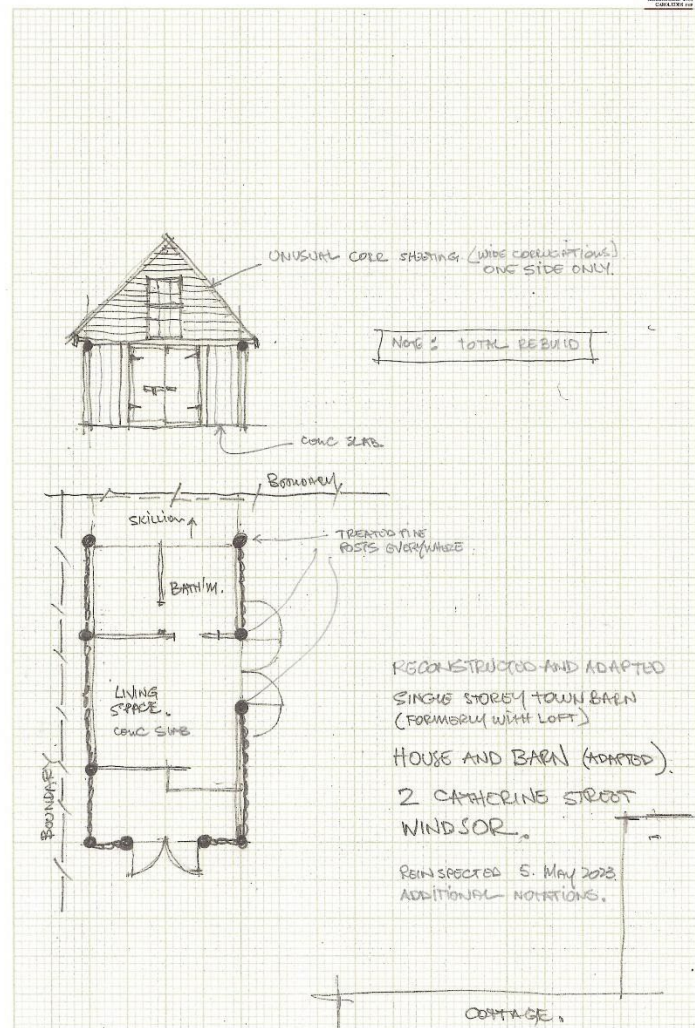 UNUSUAL CORR SHEETING (WIDE CORRUGATIONS)
ONE SIDE ONLY.
NOTE: TOTAL REBUILD
CONC SLAB
BOUNDARY
SKILLION
TREATED PINE
POSTS EVERYWHERE
BATH'M.
LIVING
SPACE.
CONC SLAB
BOUNDARY
RECONSTRUCTED AND ADAPTED
SINGLE STOREY TOWN BARN
(FORMERLY WITH LOFT)
HOUSE AND BARN (ADAPTED).
2 CATHERINE STREET
WINDSOR.
REINSPECTED 5. MAY 2023.
ADDITIONAL NOTATIONS.
COTTAGE.